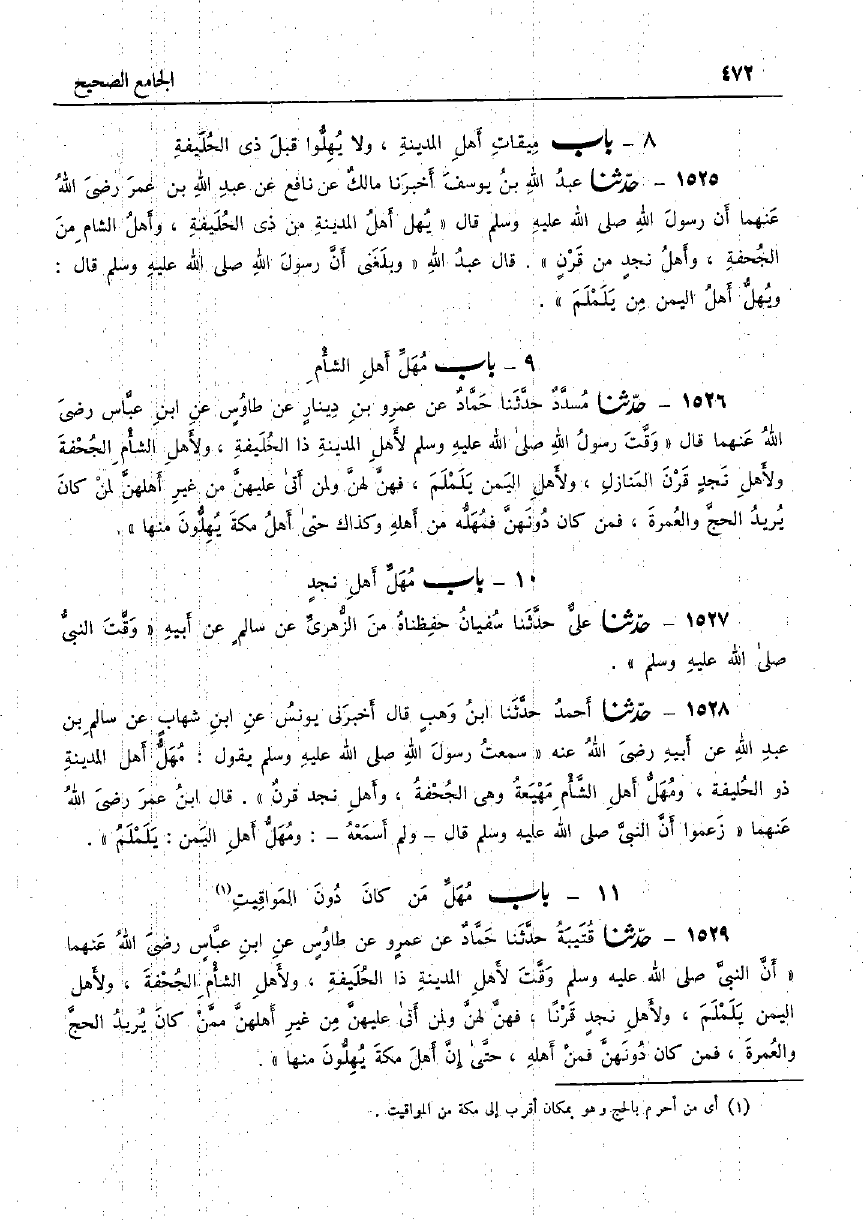 ٤٧٢
الجامع الصحيح
٨ - باب مِيقاتِ أهلِ المدينةِ ، ولا يُهِلُّوا قبلَ ذى الحُلَيفةِ
١٥٢٥ - حدّثنا عبدُ اللهِ بنُ يوسفَ أخبرَنا مالكٌ عن نافع عن عبدِ اللهِ بن عمرَ رضىَ اللهُ
عَنهما أن رسولَ اللهِ صلى الله عليهِ وسلم قال « يُهل أهلُ المدينةِ من ذى الحُلَيفةِ ، وأهلُ الشام مِنَ
الجُحفةِ ، وأهلُ نجدٍ من قَرْنٍ » . قال عبدُ اللهِ « وبلَغَنى أنَّ رسولَ اللهِ صلى الله عليهِ وسلم قال :
ويُهلُّ أهلُ اليمن مِن يَلَمْلَمَ » .
٩ - باب مُهَلِّ أهلِ الشأْمِ
١٥٢٦ - حدّثنا مُسدَّدٌ حدَّثَنا حَمَّادٌ عن عمرِو بنِ دِينارٍ عن طاوُسٍ عنِ ابنِ عبَّاس رضىَ
اللهُ عَنهما قال « وَقَّتَ رسولُ اللهِ صلىٰ الله عليهِ وسلم لأهلِ المدينةِ ذا الحُلَيفةِ ، ولأهلِ الشأْمِ الجُحْفةَ
ولأهلِ نَجدٍ قَرْنَ المَنازلِ ، ولأهلِ اليَمن يَلَمْلَمَ ، فهنَّ لهنَّ ولمن أتىٰ عليهنَّ من غيرِ أهلهنَّ لمنْ كانَ
يُريدُ الحجَّ والعُمرةَ ، فمن كان دُونَهنَّ فمُهَلُّه من أهلهِ وكذاك حتىٰ أهلُ مكةَ يُهِلُّونَ منها » .
١٠ - باب مُهَلِّ أهلِ نجدٍ
١٥٢٧ - حدّثنا علىٌّ حدَّثَنا سُفيانُ حفِظناهُ منَ الزُّهرىِّ عن سالمٍ عن أبيهِ « وَقَّتَ النبىُّ
صلىٰ الله عليهِ وسلم » .
١٥٢٨ - حدّثنا أحمدُ حدَّثَنا ابنُ وَهبٍ قال أخبرَنى يونسُ عنِ ابنِ شهابٍ عن سالمِ بن
عبدِ اللهِ عن أبيهِ رضىَ اللهُ عنه « سمعتُ رسولَ اللهِ صلى الله عليهِ وسلم يقول : مُهَلُّ أهل المدينةِ
ذو الحُليفة ، ومُهَلُّ أهلِ الشَّأْمِ مَهْيَعةُ وهى الجُحْفةُ ، وأهلِ نجد قرنٌ » . قال ابنُ عمرَ رضىَ اللهُ
عَنهما « زَعموا أنَّ النبىَّ صلى الله عليهِ وسلم قال – ولم أسمَعْهُ – : ومُهَلُّ أهلِ اليَمن : يَلَمْلَمُ » .
١١ - باب مُهَلِّ مَن كانَ دُونَ المَواقِيتِ(١)
١٥٢٩ - حدّثنا قُتَيبَةُ حدَّثَنا حَمَّادٌ عن عمرٍو عن طاوُسٍ عنِ ابنِ عبَّاسٍ رضىَ اللهُ عَنهما
« أنَّ النبىَّ صلى الله عليه وسلم وَقَّتَ لأهلِ المدينةِ ذا الحُلَيفةِ ، ولأهلِ الشأْمِ الجُحْفةَ ، ولأهل
اليمن يَلَمْلَمَ ، ولأهلِ نجدٍ قَرْنًا ، فهنَّ لهنَّ ولمن أتىٰ عليهنَّ مِن غيرِ أهلهنَّ ممَّنْ كانَ يُريدُ الحجَّ
والعُمرةَ ، فمن كان دُونَهنَّ فمنْ أهلهِ ، حتَّىٰ إنَّ أهلَ مكةَ يُهِلُّونَ منها » .
(١) أى من أحرم بالحج وهو بمكان أقرب إلى مكة من المواقيت .